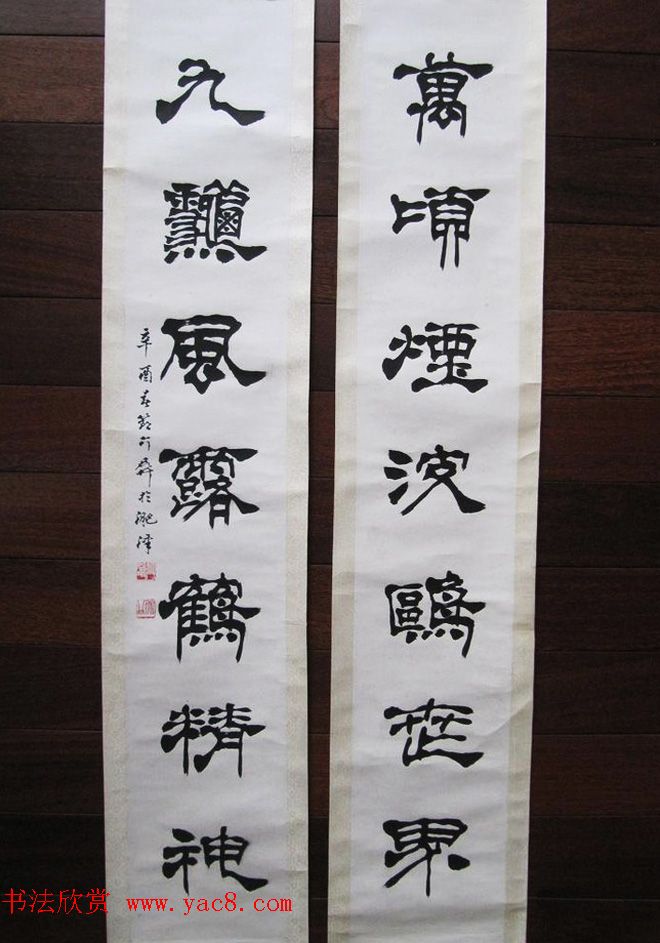 萬頃煙波鷗世界
九風露鶴精神
辛酉春節於淝津
书法欣赏 www.yac8.com